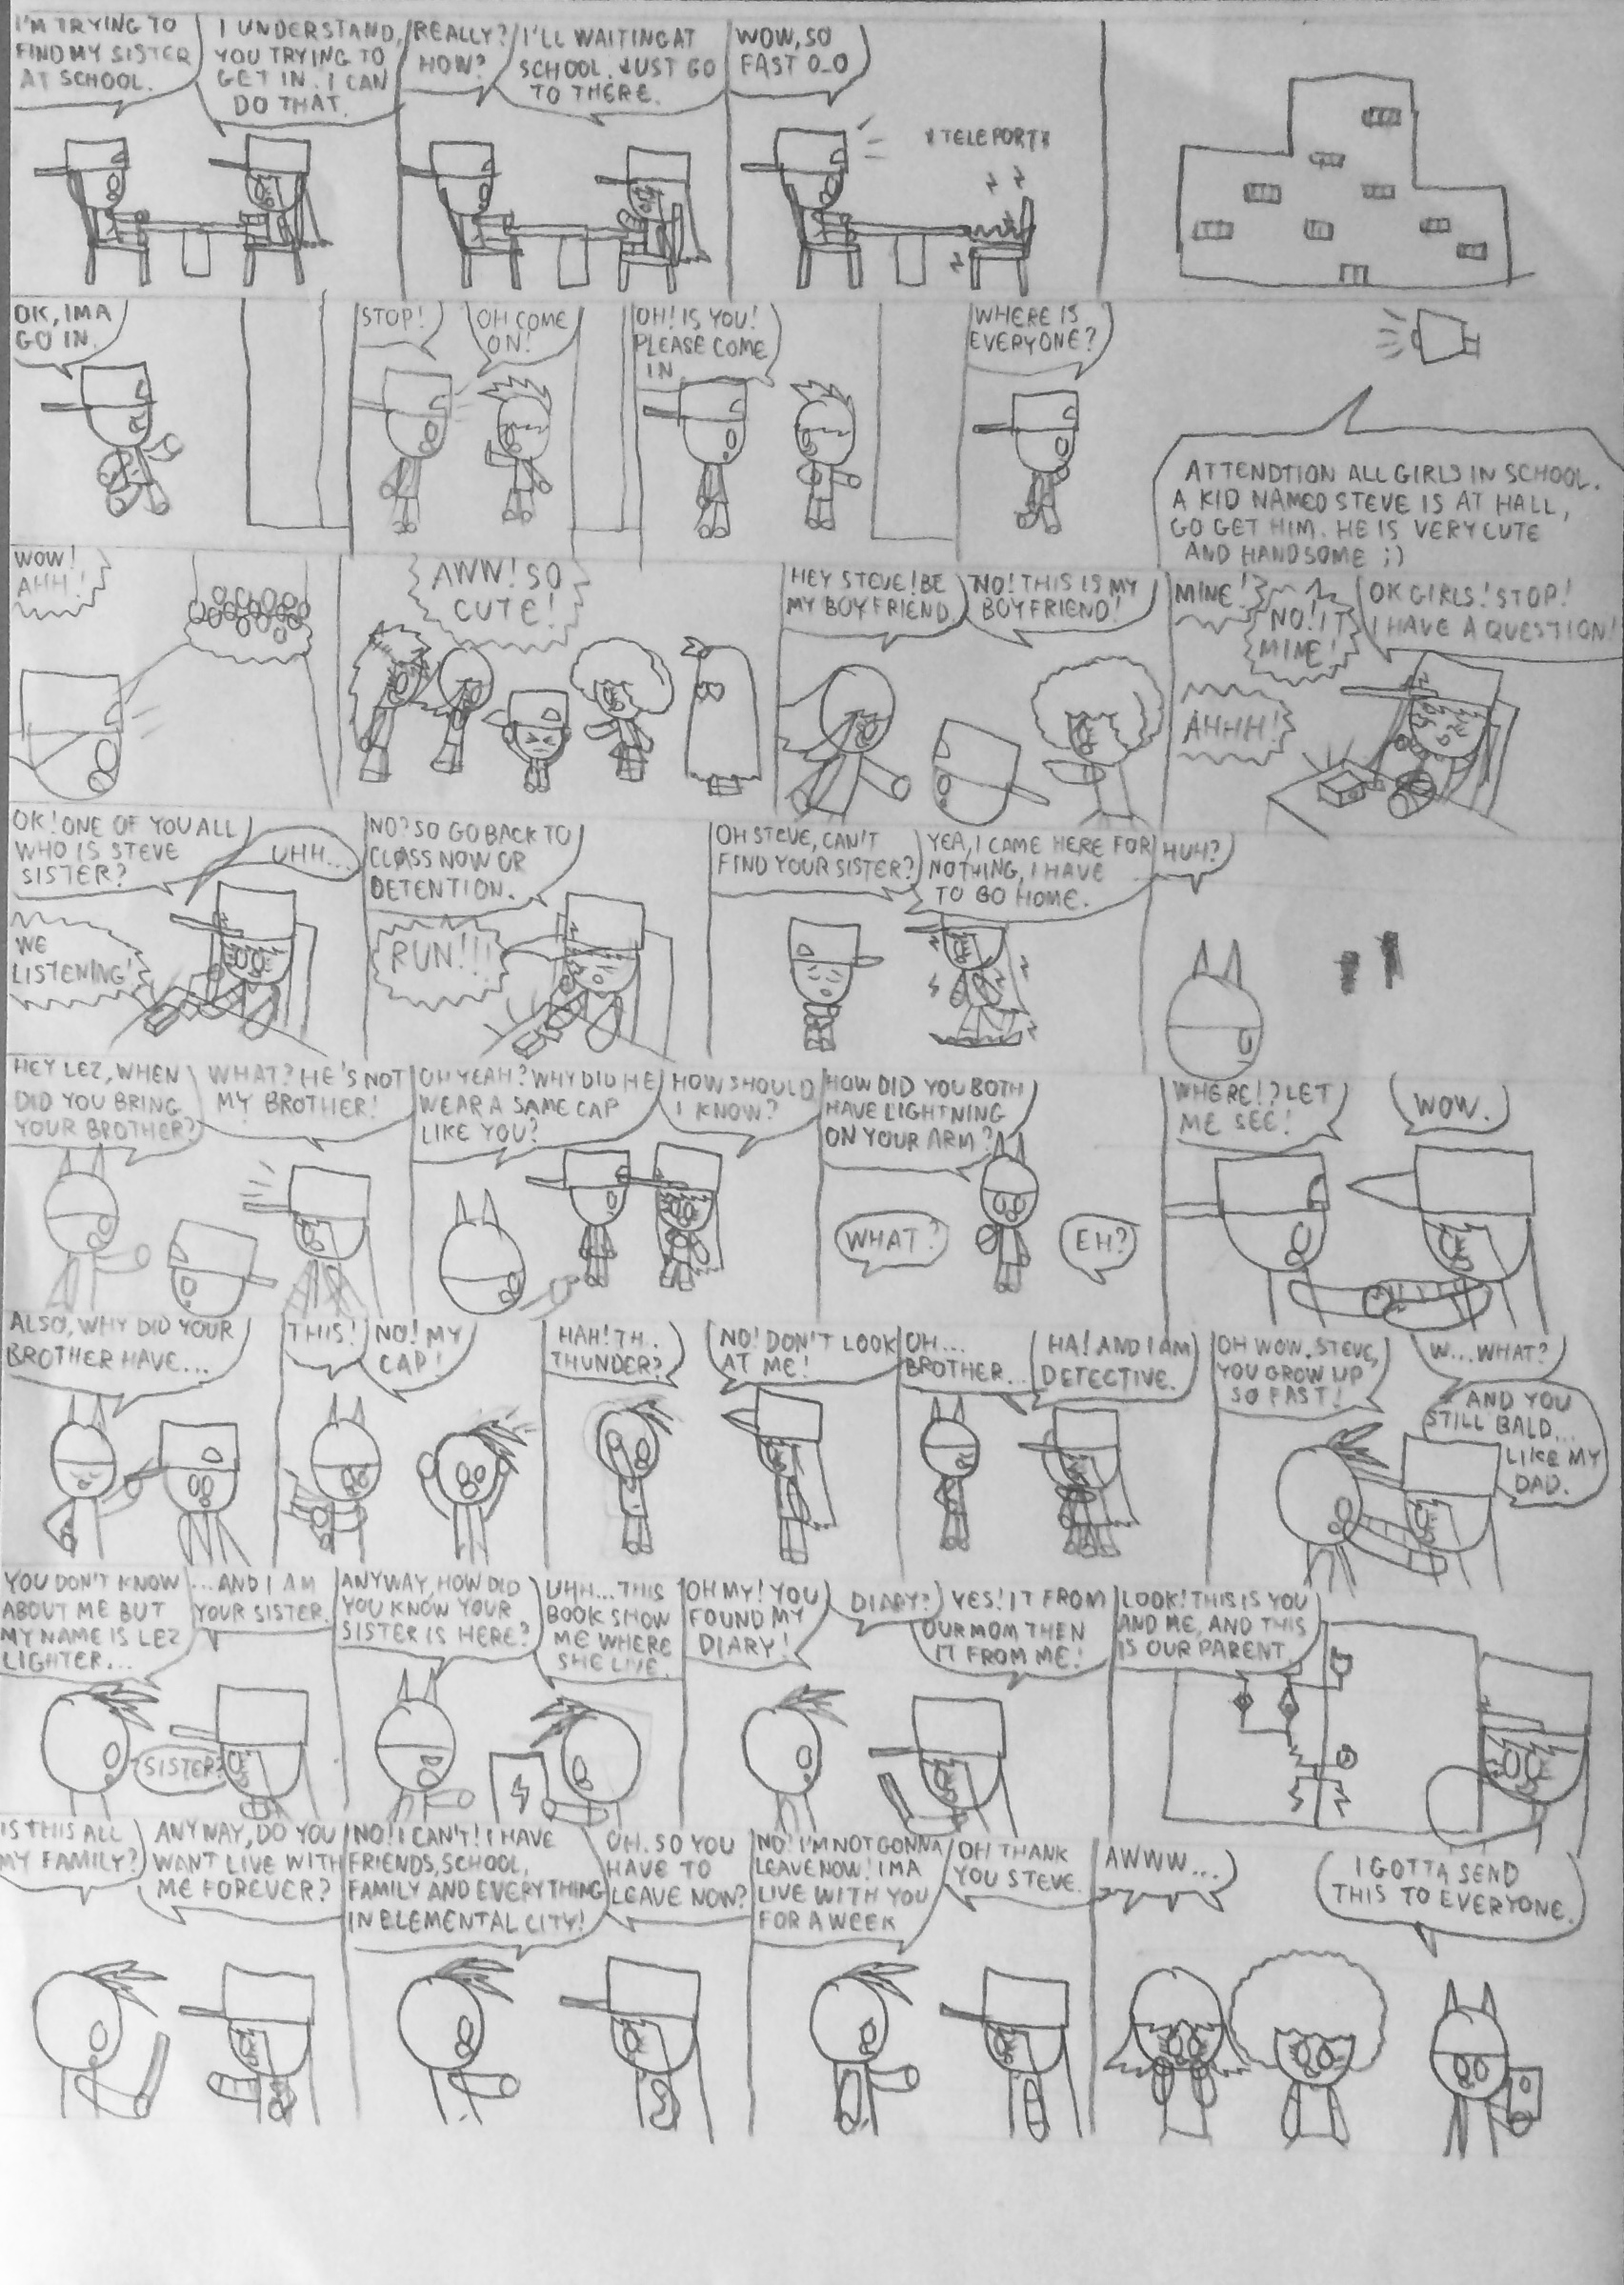 I'M TRYING TO
FIND MY SISTER
AT SCHOOL.
I UNDERSTAND,
YOU TRYING TO
GET IN. I CAN
DO THAT.
REALLY?
HOW?
I'LL WAITING AT
SCHOOL. JUST GO
TO THERE.
WOW, SO
FAST O_O
*TELEPORT*
OK, IMA
GO IN.
STOP!
OH COME
ON!
OH! IS YOU!
PLEASE COME
IN
WHERE IS
EVERYONE?
ATTENDTION ALL GIRLS IN SCHOOL.
A KID NAMED STEVE IS AT HALL,
GO GET HIM. HE IS VERY CUTE
AND HANDSOME ;)
WOW!
AHH!
AWN! SO
CUTE!
HEY STEVE! BE
MY BOYFRIEND
NO! THIS IS MY
BOYFRIEND!
MINE!
NO! IT
MINE!
AHHH!
OK GIRLS! STOP!
I HAVE A QUESTION!
OK! ONE OF YOU ALL
WHO IS STEVE
SISTER?
UHH...
WE
LISTENING!
NO? SO GO BACK TO
CLASS NOW OR
DETENTION.
RUN!!!
OH STEVE, CAN'T
FIND YOUR SISTER?
YEA, I CAME HERE FOR
NOTHING, I HAVE
TO GO HOME.
HUH?
HEY LEZ, WHEN
DID YOU BRING
YOUR BROTHER?
WHAT? HE'S NOT
MY BROTHER!
OH YEAH? WHY DID HE
WEAR A SAME CAP
LIKE YOU?
HOW SHOULD
I KNOW?
HOW DID YOU BOTH
HAVE LIGHTNING
ON YOUR ARM?
WHAT?
EH?
WHERE!? LET
ME SEE!
WOW.
ALSO, WHY DID YOUR
BROTHER HAVE...
THIS!
NO! MY
CAP!
HAH! TH..
THUNDER?
NO! DON'T LOOK
AT ME!
OH...
BROTHER...
HA! AND I AM
DETECTIVE.
OH WOW, STEVE,
YOU GROW UP
SO FAST!
W...WHAT?
AND YOU
STILL BALD...
LIKE MY
DAD.
YOU DON'T KNOW
ABOUT ME BUT
MY NAME IS LEZ
LIGHTER...
...AND I AM
YOUR SISTER.
SISTER?
ANYWAY, HOW DID
YOU KNOW YOUR
SISTER IS HERE?
UHH...THIS
BOOK SHOW
ME WHERE
SHE LIVE.
OH MY! YOU
FOUND MY
DIARY!
DIARY?
YES! IT FROM
OUR MOM THEN
IT FROM ME!
LOOK! THIS IS YOU
AND ME, AND THIS
IS OUR PARENT.
IS THIS ALL
MY FAMILY?
ANYWAY, DO YOU
WANT LIVE WITH
ME FOREVER?
NO! I CAN'T! I HAVE
FRIENDS, SCHOOL,
FAMILY AND EVERYTHING
IN ELEMENTAL CITY!
OH. SO YOU
HAVE TO
LEAVE NOW?
NO! I'M NOT GONNA
LEAVE NOW! IMA
LIVE WITH YOU
FOR A WEEK
OH THANK
YOU STEVE.
AWWW...
I GOTTA SEND
THIS TO EVERYONE.